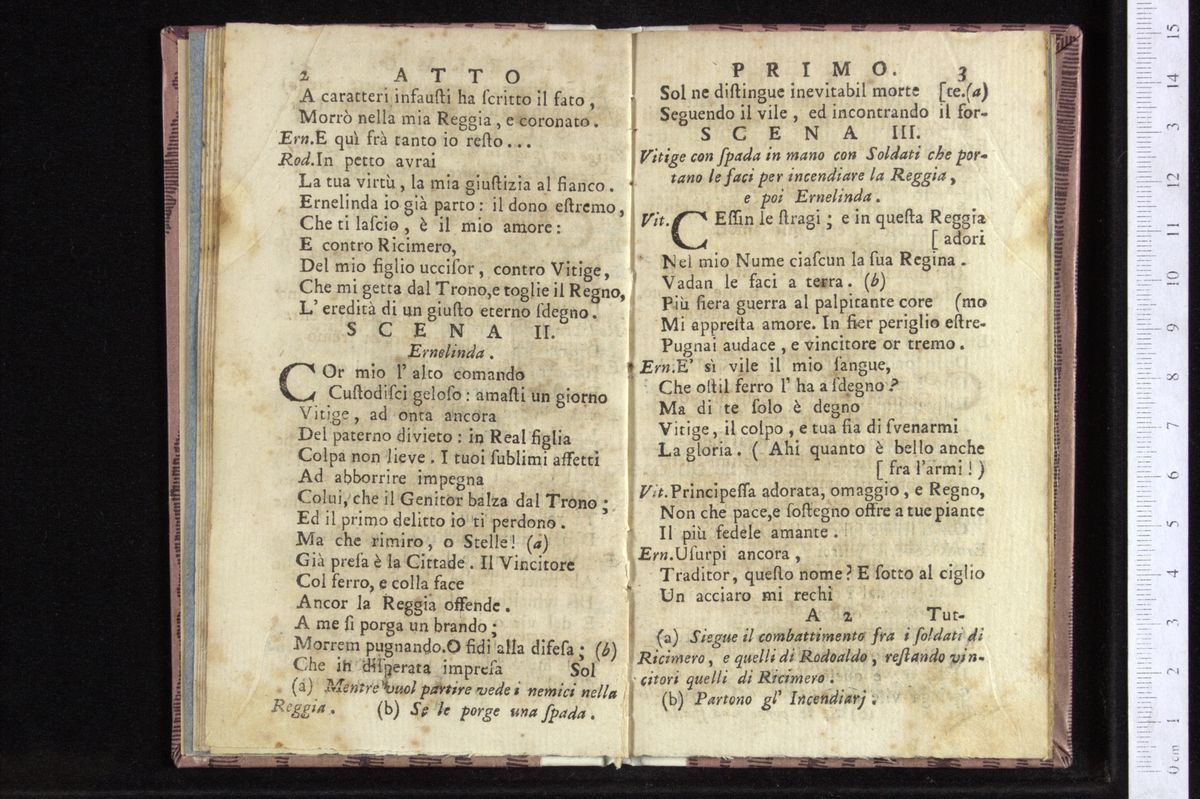 2 ATTO
A caratteri infausti ha ſcritto il fato,
Morrò nella mia Reggia, e coronato.
Ern.E quì frà tanto io reſto...
Rod.In petto avrai
La tua virtù, la mia giuſtizia al fianco.
Ernelinda io già parto: il dono eſtremo,
Che ti laſcio, è il mio amore:
E contro Ricimero,
Del mio figlio ucciſor, contro Vitige,
Che mi getta dal Trono,e toglie il Regno,
L' eredità di un giuſto eterno ſdegno.
SCENA II.
Ernelinda.
COr mio l' alto comando
Cuſtodiſci geloſo: amaſti un giorno
Vitige, ad onta ancora
Del paterno divieto: in Real figlia
Colpa non lieve. I tuoi ſublimi affetti
Ad abborrire impegna
Colui, che il Genitor balza dal Trono;
Ed il primo delitto io ti perdono.
Ma che rimiro, o Stelle! (a)
Già preſa è la Cittade. Il Vincitore
Col ferro, e colla face
Ancor la Reggia offende.
A me ſi porga un brando;
Morrem pugnando.O fidi alla difeſa; (b)
Che in diſperata impreſa Sol
(a) Mentre vuol partire vede i nemici nella
Reggia. (b) Se le porge una ſpada.
PRIMO. 3
Sol ne diſtingue inevitabil morte [te.(a)
Seguendo il vile, ed incontrando il for-
SCENA III.
Vitige con ſpada in mano con Soldati che por-
tano le faci per incendiare la Reggia,
e poi Ernelinda.
Vit.CEſſin le ſtragi; e in queſta Reggia
[adori
Nel mio Nume ciaſcun la ſua Regina.
Vadan le faci a terra. (b)
Più fiera guerra al palpitante core (mo
Mi appreſta amore. In fier periglio eſtre-
Pugnai audace, e vincitore or tremo.
Ern.E' sì vile il mio ſangue,
Che oſtil ferro l' ha a ſdegno?
Ma di te ſolo è degno
Vitige, il colpo, e tua ſia di ſvenarmi
La gloria. (Ahi quanto è bello anche
[fra l'armi!)
Vit.Principeſſa adorata, omaggio, e Regno,
Non che pace,e ſoſtegno offre a tue piante
Il più fedele amante.
Ern.Uſurpi ancora,
Traditor, queſto nome? E ſotto al ciglio
Un acciaro mi rechi
A 2 Tut-
(a) Siegue il combattimento fra i ſoldati di
Ricimero, e quelli di Rodoaldo, reſtando vin-
citori quelli di Ricimero.
(b) Partono gl' Incendiarj.
0 cm 1 2 3 4 5 6 7 8 9 10 11 12 13 14 15